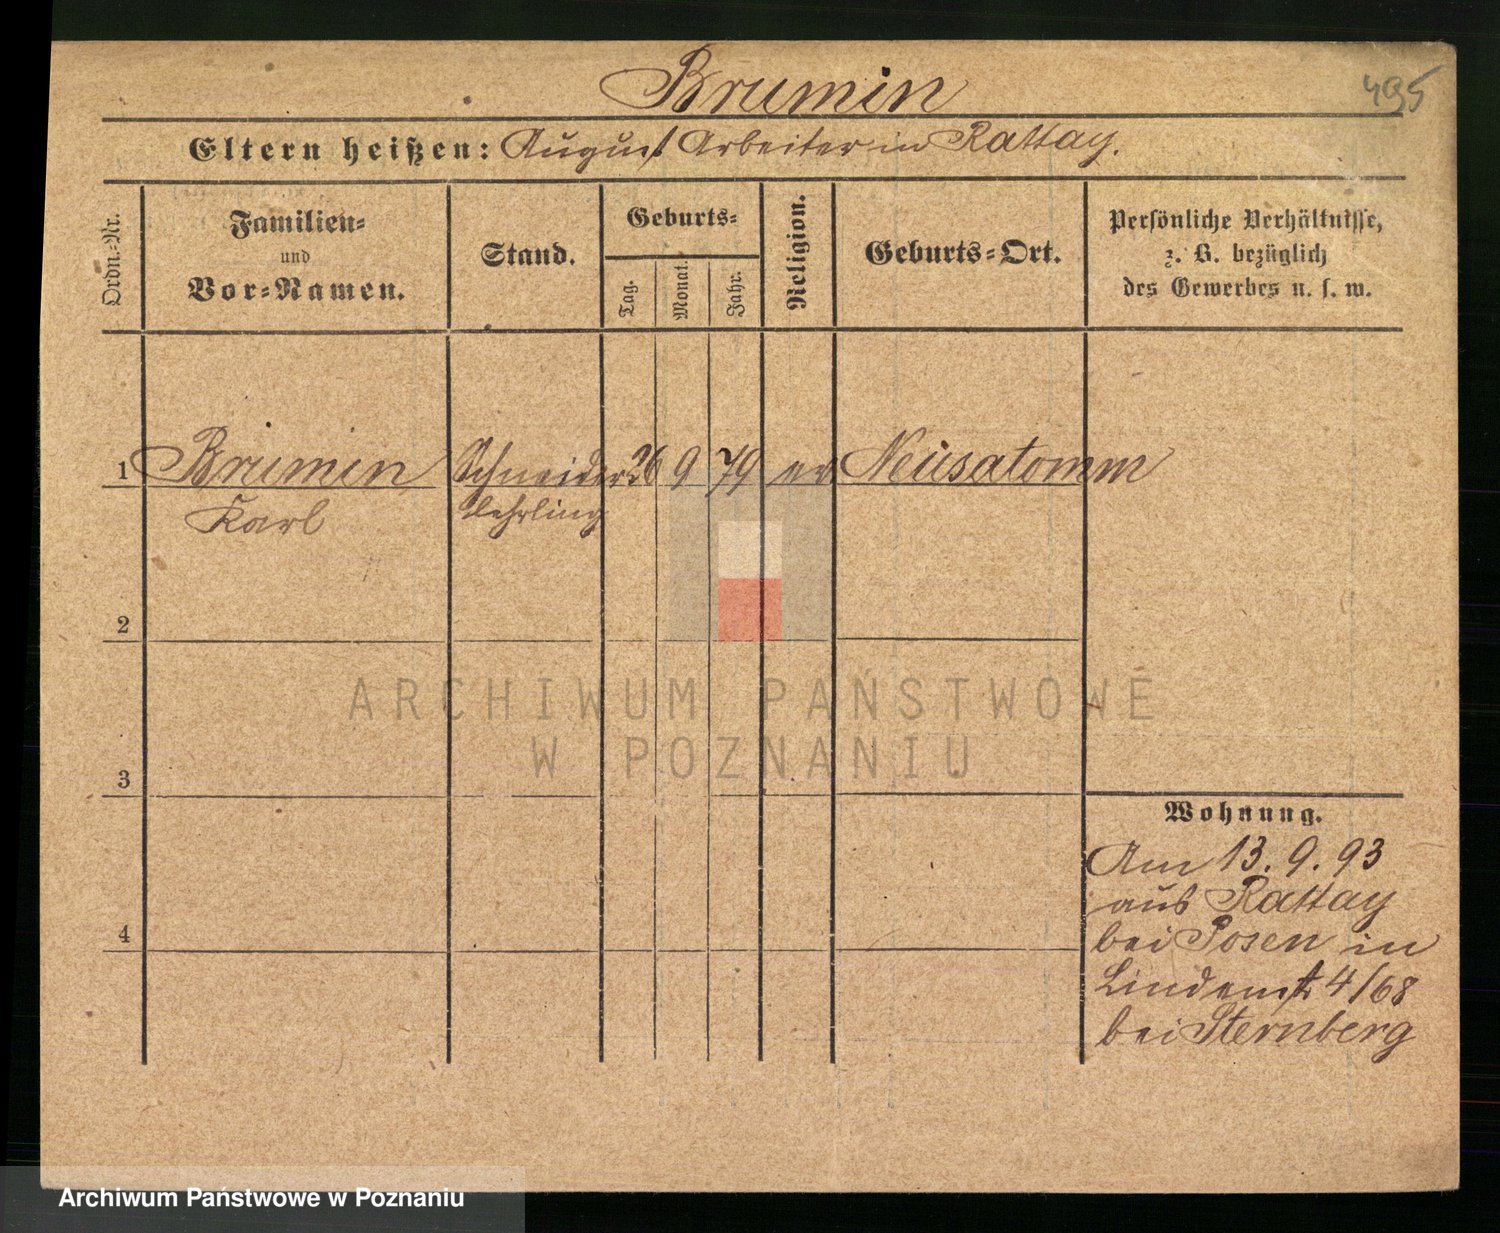 Brumin
495
Eltern heißen: August Arbeiter in Rattay.
Ordn.-Nr.
Familien-
und
Vor-Namen.
Stand.
Geburts-
Tag.
Monat.
Jahr.
Religion.
Geburts-Ort.
Persönliche Verhältnisse,
z. B. bezüglich
des Gewerbes u. s. w.
1 Brumin Schneider 26 9 79 ev Neusatomm
Karl Lehrling
2
ARCHIWUM PAŃSTWOWE
W POZNANIU
3
Wohnung.
Am 13. 9. 93
aus Rattay
4
bei Posen in
Lindenstr 4/68
bei Sternberg
Archiwum Państwowe w Poznaniu